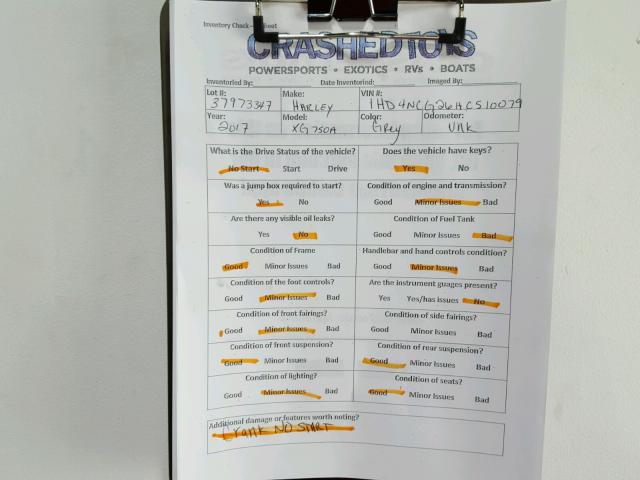 Inventory Check
CRASHEDTOYS
POWERSPORTS • EXOTICS • RVs • BOATS
Inventoried By: Date Inventoried: Imaged By:
Lot #: Make: VIN #:
37973347 HARLEY 1HD4NCG26HC510079
Year: Model: Color: Odometer:
2017 XG750A Grey Unk
What is the Drive Status of the vehicle? Does the vehicle have keys?
No Start Start Drive Yes No
Was a jump box required to start? Condition of engine and transmission?
Yes No Good Minor Issues Bad
Are there any visible oil leaks? Condition of Fuel Tank
Yes No Good Minor Issues Bad
Condition of Frame Handlebar and hand controls condition?
Good Minor Issues Bad Good Minor Issues Bad
Condition of the foot controls? Are the instrument guages present?
Good Minor Issues Bad Yes Yes/has issues No
Condition of front fairings? Condition of side fairings?
Good Minor Issues Bad Good Minor Issues Bad
Condition of front suspension? Condition of rear suspension?
Good Minor Issues Bad Good Minor Issues Bad
Condition of lighting? Condition of seats?
Good Minor Issues Bad Good Minor Issues Bad
Additional damage or features worth noting?
Crank NO START